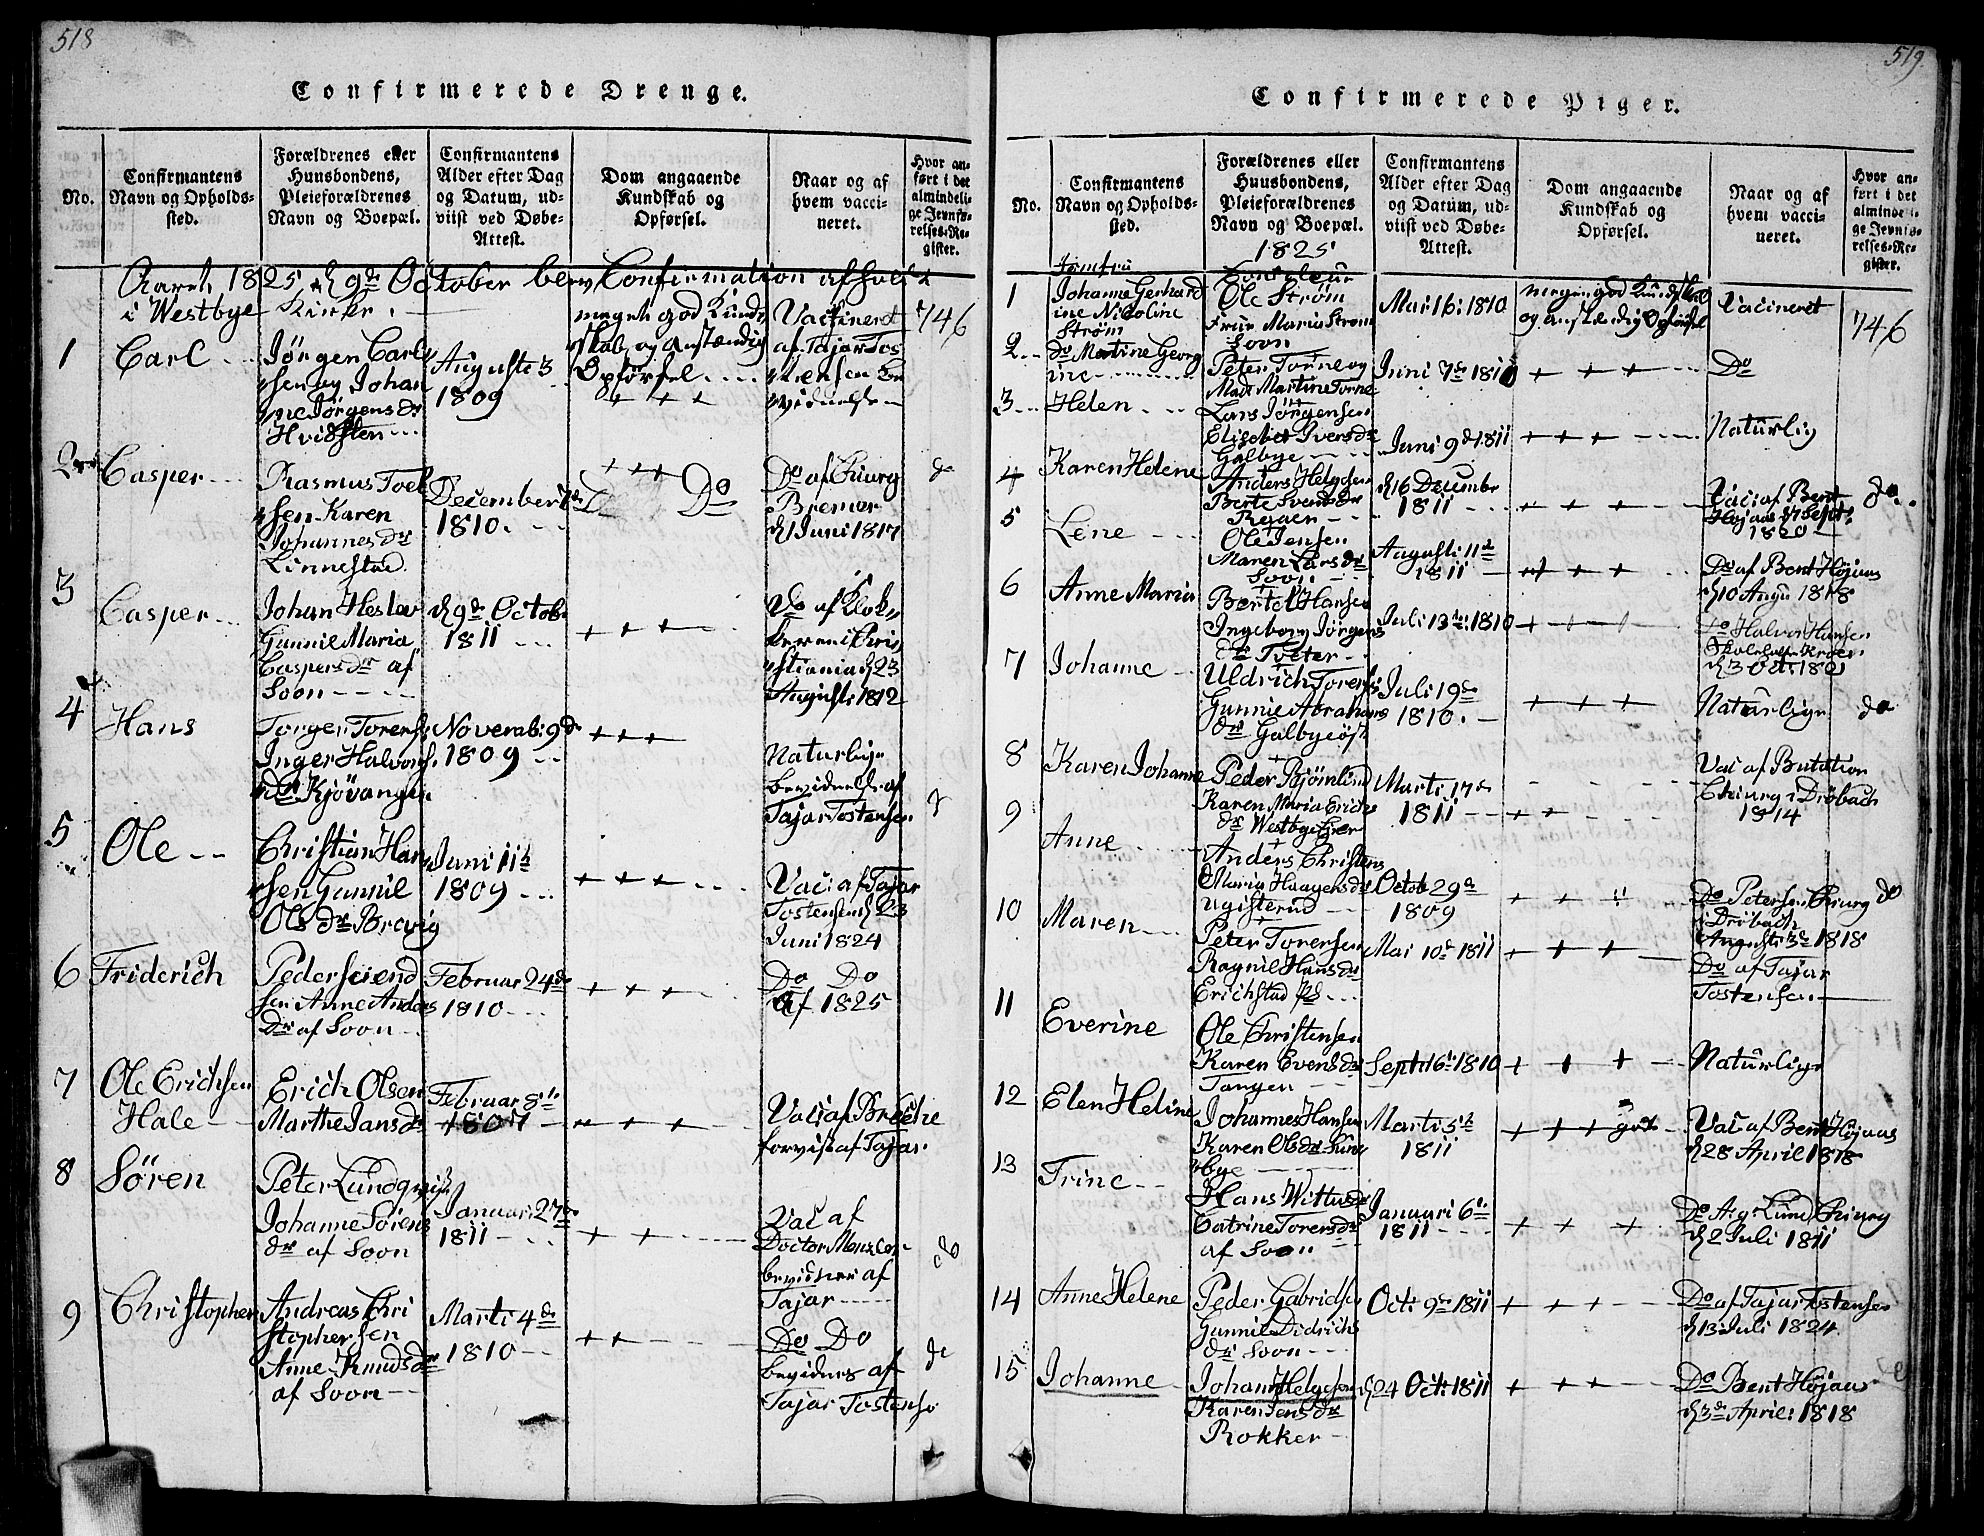 518
Confirmerede Drenge.
No.
Confirmantens
Navn og Opholds-
sted.
Forældrenes eller
Huusbondens,
Pleieforældrenes
Navn og Boepæl.
Confirmantens
Alder efter Dag
og Datum, ud-
viist ved Døbe-
Attest.
Dom angaaende
Kundskab og
Opførsel.
Naar og af
hvem vacci-
neret.
Hvor an-
ført i det
almindeli-
ge Jevnfø-
relses-Re-
gister.
Aaret 1825 d 9de October blev Confirmation afholdt
i Westbye Kirke.
1
Carl
Jørgen Carl
sen og Johan
ne Jørgensdr
Hvidsten
Augusti 3
1809
meget god Kund
skab og Anstændig
Opförsel
+ + +
Vaccineret
af Tajar Tos
tensen be
vidnelse
746
2
Casper
Rasmus Toel
sen Karen
Johannesdr
Linnestad
December 7de
1810.
+ + +
Do
Do af Chiurg
Bremer
d 1 Juni 1817
do
3
Casper
Johan Heslov
Gunnie Maria
Caspersdr af
Soon
d 9de Octob
1811
+ + +
Do af Klok
keren i Chris
tiania d 23
Augusti 1812
4
Hans
Torger Torens
Inger Halvors
dr Kjövangen
Novemb: 9de
1809
+ + +
Naturlige
bevidnelse af
Tajar Tostensen
5
Ole
Christian Han
sen Gunnil
Ols dr Brevig
Juni 11te
1809
+ + +
Vaci af Tajar
Tostensen d 23
Juni 1824
6
Friderich
Peder Seiend
sen Anne Anders
Dr af Soon
Februar 24de
1810
+ + +
Do Do
af 1825
7
Ole Erichsen
Hale
Erich Olsen
Marthe Jansdr
Februar 8te
1807
+ + +
Vaci af
forvist af Tajar.
8
Sören
Peter Lundqvist
Johanne Sörens
dr af Soon
Januari 27de
1811
+ +
Vac af
Doctor
bevidnet af
Tajar
do
9
Christopher
Andreas Chri
stophersen
Anne Knudsdr
af Soon
Marti 4de
1810
+ +
Do Do
bevidnes af
Tajar Tostensø
do
519.
Confirmerede Piger.
No.
Confirmantens
Navn og Opholds-
sted.
Forældrenes eller
Huusbondens,
Pleieforældrenes
Navn og Boepæl.
1825
Confirmantens
Alder efter Dag
og Datum, ud-
viist ved Døbe-
Attest.
Dom angaaende
Kundskab og
Opførsel.
Naar og af
hvem vacci-
neret.
Hvor an-
ført i det
almindeli-
ge Jevnfø-
relses-Re-
gister.
1
Jomfru
Johanne Gerhard
ine Nicoline
Ström
Ole Ström
Frue Maria Strom
Soon
Mai 16: 1810
megen god Kundskab
og anstændig Opførsel
Vacineret
746
2
do Martine Georg
ine
Peter Torne og
Mad: Martine Torne
Juni 7de 1810
+ + +
Do
3
Helen
Lars Jörgensen
Elisabet Iversdr
Galbye
Juni 9d 1811
+ + +
Naturlig
4
Karen Helene
Anders Helgesen
Berte Svendsdr
Rygaen
d 16 Decembr
1811
+ + +
Vaci af Bent
Højaas d 7 Sept:
1820
do
5
Lene
Ole Jensen
Maren Larsdr
Soon
Augusti 11te
1811
+ + +
Do af Bent Højaas
d 10 Augu 1818
6
Anne Maria
Bertel Hansen
Ingeborg Jörgens
dr Tveter
Juli 13de: 1810
+ + +
Do Halvor Hansen
d 3 Oct: 1801
7
Johanne
Uldrich Torens
Gunnie Abrahams
dr Galbye øst
Juli 19de
1810.
+ + +
Naturlige
do
8
Karen Johanne
Peder Bjömlund
Karen Maria Erichs
dr Westbye Eier
Marti 17de
1811
+ +
Vac af Butation
Chiurg i Dröbach
1814
9
Anne
Anders Christens
Maria Haagensdr
ugisterud
Octob 29de
1809
+ +
Do Petersen Chiurg
i Dröbach
Augusti 3de 1818
do
10
Maren
Peter Torersen
Ragnil Hansdr
Erichstad PS
Mai 10de 1811
+ + +
Do af Tajar
Tostensen
11
Everine
Ole Christensen
Karen Evensdr
Tangen
Sept: 16: 1810
+ + +
Naturlige
12
Elen Heline
Johannes Hansen
Karen Olsdr Sun
bye
Marti 5te
1811
+ + + got
Vac af Bent Højaas
d 28 April 1818
13
Trine
Hans
Catrine Torersdr
af Soon
Januari 6te
1811
+ + +
Do A: gr Lund Chiurg
d 2 Juli 1811
14
Anne Helene
Peder Gabrielsen
Gunnil Didrichs
dr Soon
Oct: 9de 1811
+ + +
Do af Tajar Tostensen
d 13 Juli 1824
15
Johanne
Johan Helgesen
Karen Jensdr
Rokker
d 24 Oct: 1811
+ + +
Do Bent Højaas
d 3de April: 1818